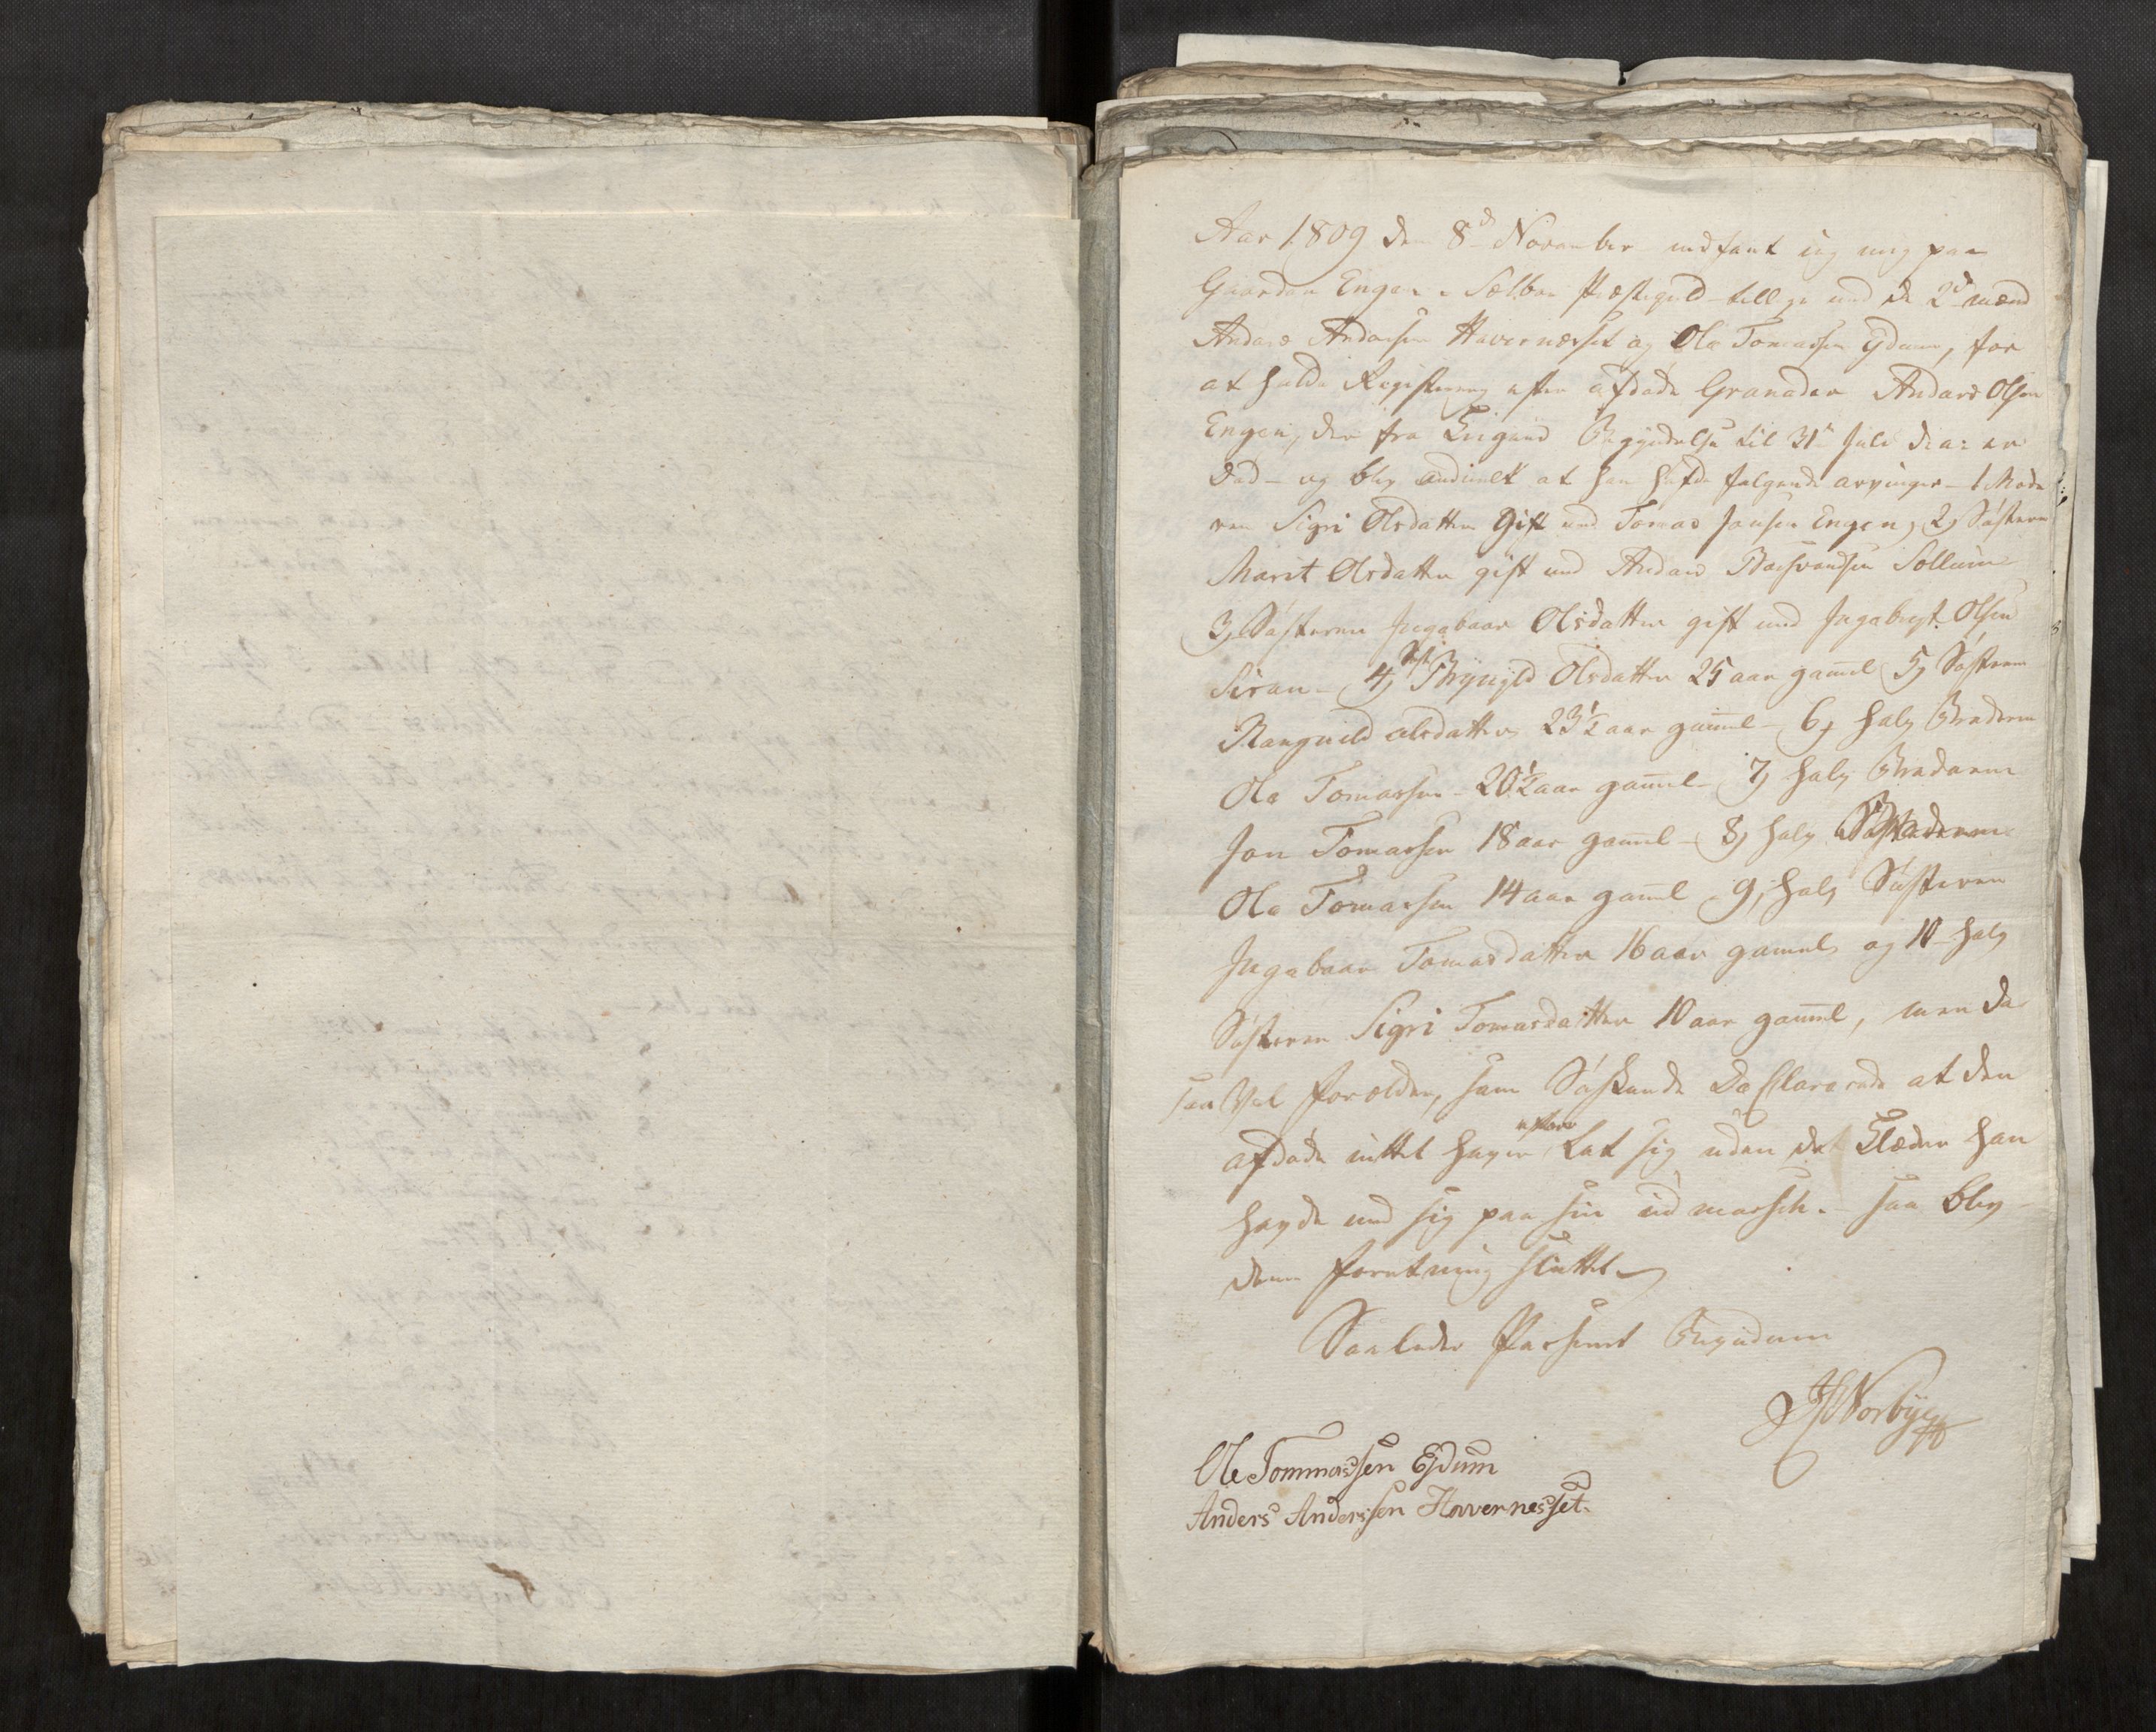 Aar 1809 den 8d November indfant ieg mig paa
Gaarden Engen i Selboe Præstegield tillige med de 2de mænd
Anders Andersen Havernesset og Ole Tomassen Ydum, for
at holde Registering efter afdøde Granader Anders Olsen
Engen, der fra Krigens Begyndelse til 31te Juli d: a: er
død – og blev andmelt at han hafde følgende arvinger – 1 Mode
ren Sigri Olsdatter Gift med Tomas Jonsen Engen, 2, Søsteren
Marit Olsdatter gift med Anders Sollum
3, Søsteren Ingebaar Olsdatter gift med Ingebrigt Olsen
4, Søst Olsdatter 25 aar gamel 5, Søsteren
Rangnild olsdatter 23½ aar gamel – 6, halv Broderen
Ole Tomassen – 20½ aar gamel – 7, halv Broderen
Jon Tomassen 18 aar gamel – 8, halv Broderen
Ole Tomassen 14 aar gamel – 9, halv Søsteren
Ingebaar Tomasdatter 16 aar gamel og 10 – halv
Søsteren Sigri Tomasdatter 10 aar gamel, men da
saa Vel forælder, som Søskende Declarerede at den
afdøde intet haver efter Lat sig uden de Klæder han
havde med sig paa sin ud marsch. – saa blev
denne foretning sluttet –
Saaledes Passeret Bevidner
Norbye
Ole Tommassen Ejdum
Anders Anderssen Havernesset.